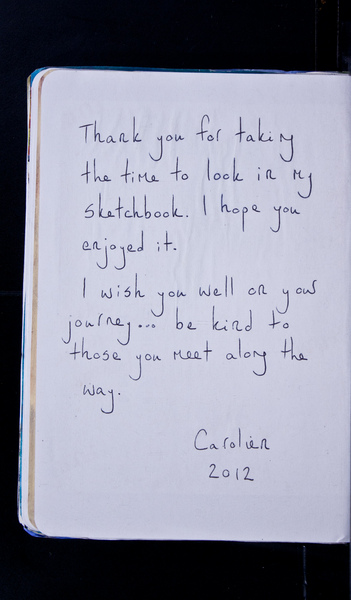 Thank you for taking
the time to look in my
sketchbook. I hope you
enjoyed it.
I wish you well on your
journey... be kind to
those you meet along the
way.
Carolien
2012